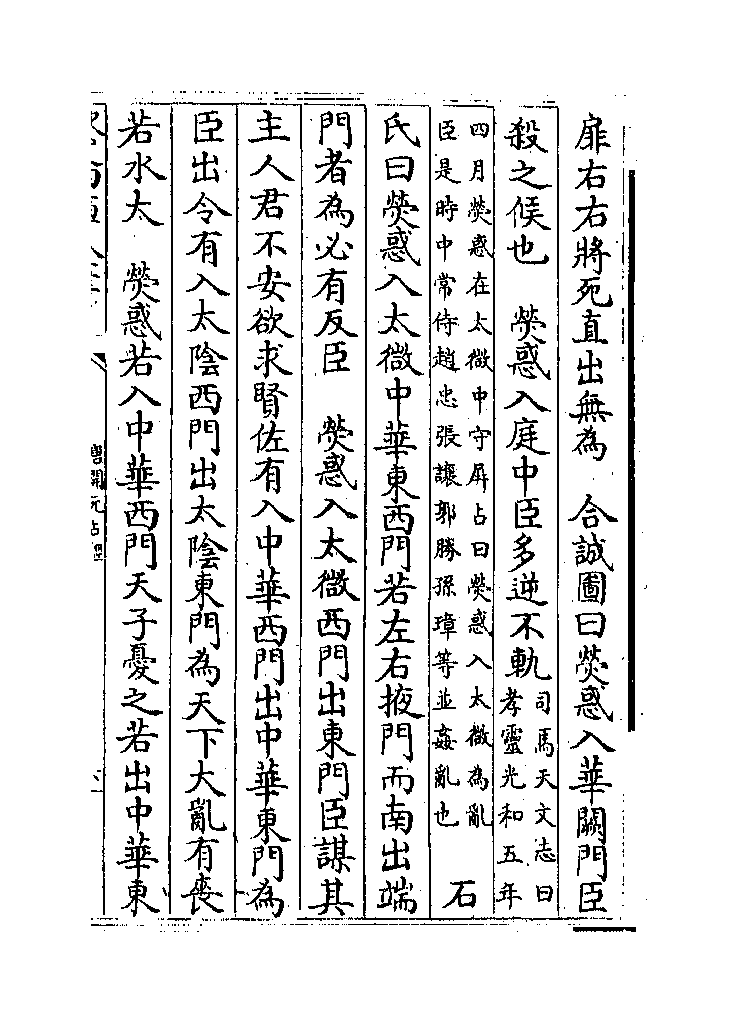 扉右右將死直出無為　合誠圖曰熒惑入華闕門臣
殺之候也　熒惑入庭中臣多逆不軌司馬天文志曰孝靈光和五年
四月熒惑在太微中守屏占曰熒惑入太微為亂臣是時中常侍趙忠張讓郭勝孫璋等並姦亂也　石
氏曰熒惑入太微中華東西門若左右掖門而南出端
門者為必有反臣　熒惑入太微西門出東門臣謀其
主人君不安欲求賢佐有入中華西門出中華東門為
臣出令有入太陰西門出太陰東門為天下大亂有喪
若水太　熒惑若入中華西門天子憂之若出中華東
唐開元占經